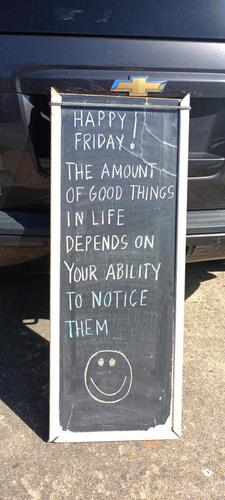 HAPPY
FRIDAY!
THE AMOUNT
OF GOOD THINGS
IN LIFE
DEPENDS ON
YOUR ABILITY
TO NOTICE
THEM